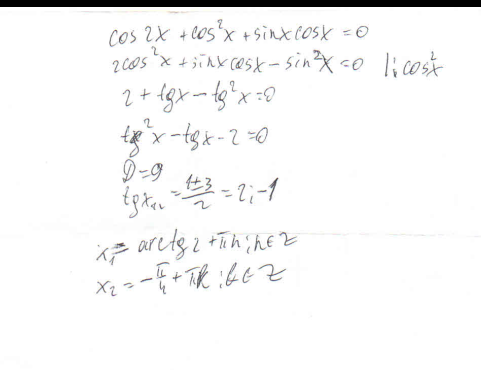 cos 2x + cos²x + sinx cosx = 0
2cos²x + sinx cosx - sin²x = 0 |: cos²x
2 + tgx - tg²x = 0
tg²x - tgx - 2 = 0
D = 9
tgx₁,₂ = (1±3)/2 = 2; -1
x₁ = arctg 2 + πn; n ∈ Z
x₂ = -π/4 + πk; k ∈ Z